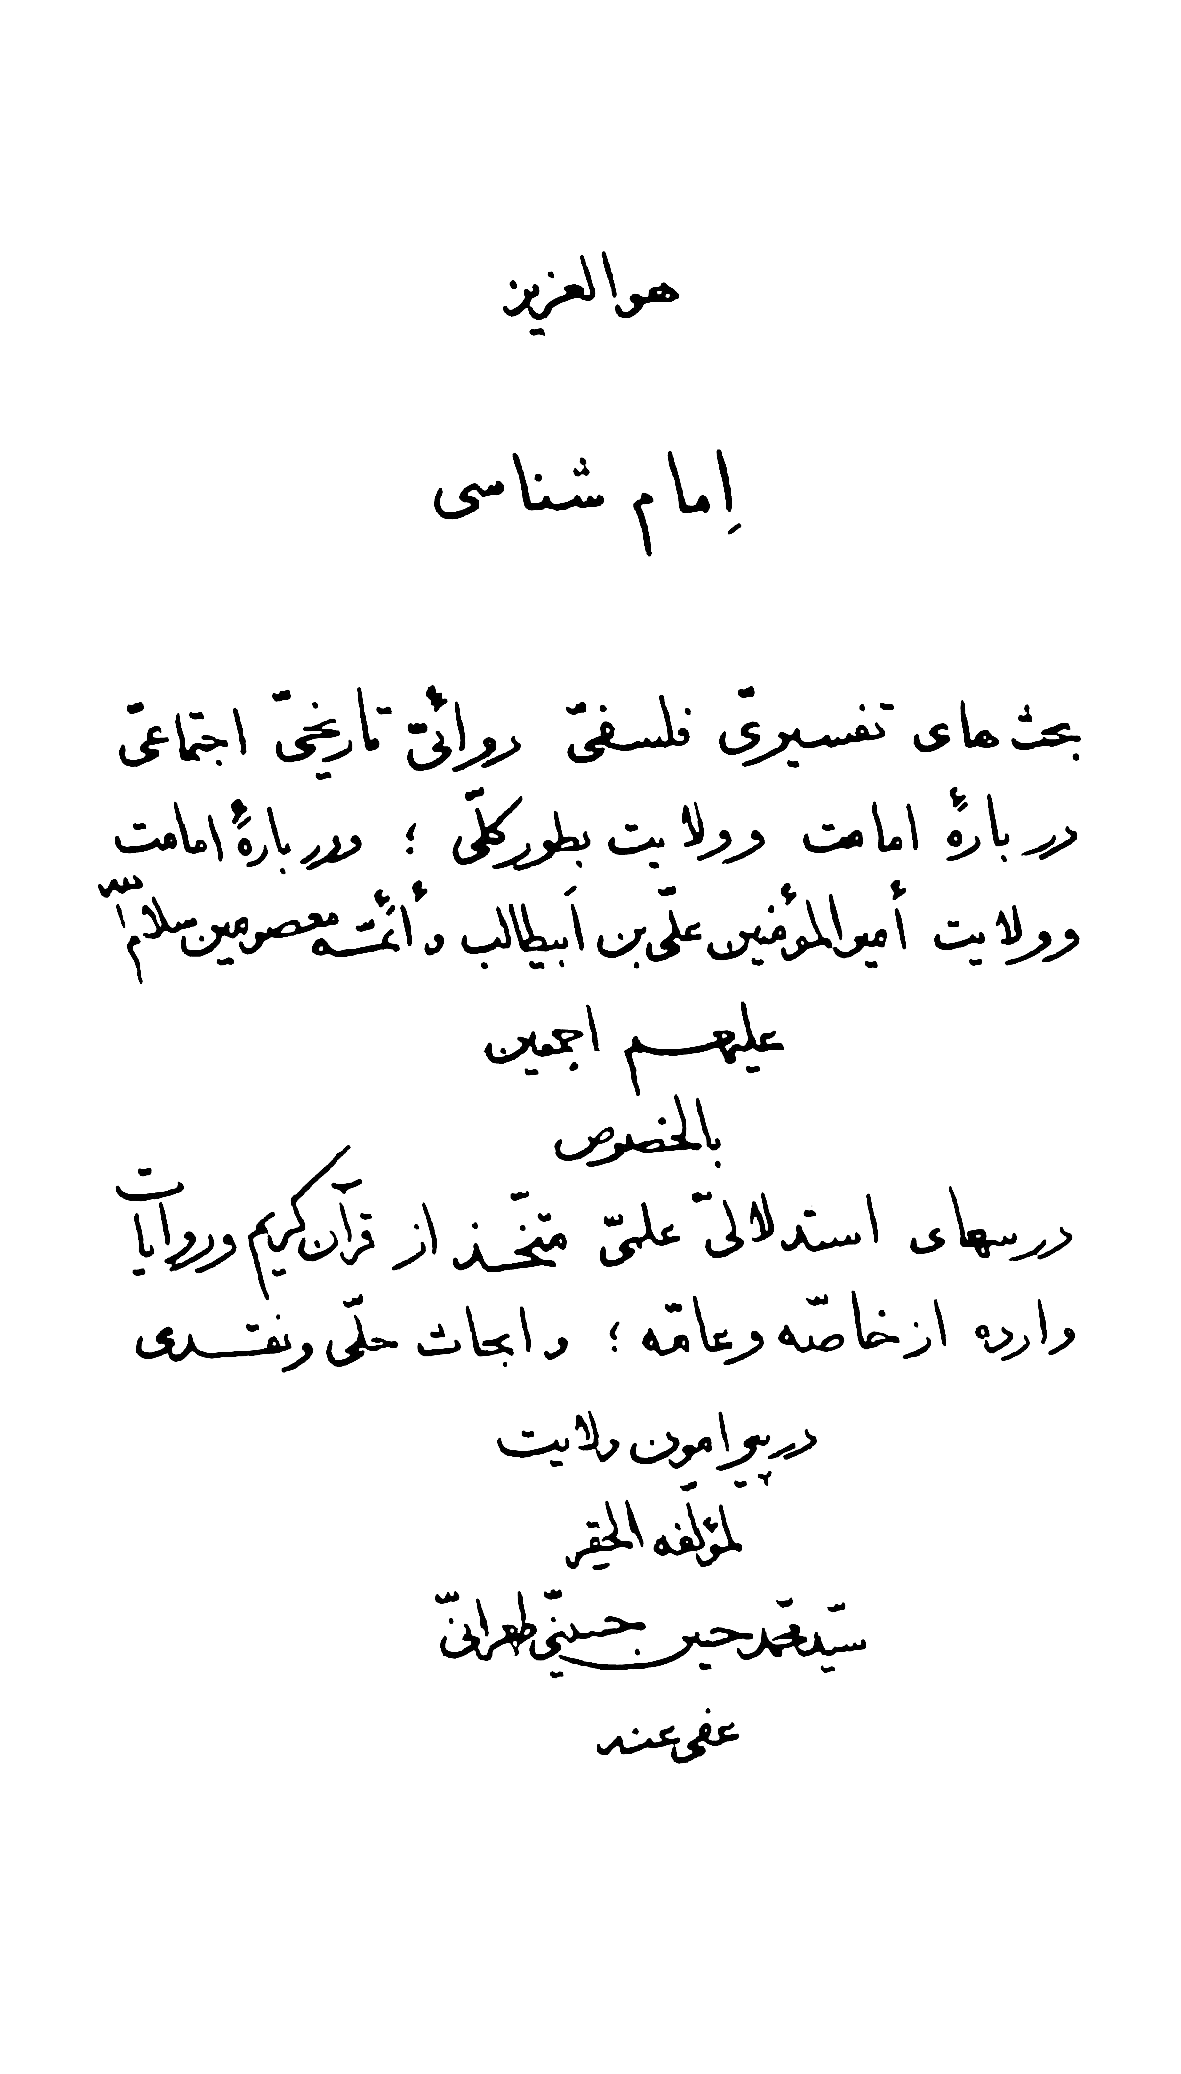 هو العزیز
إمام شناسی
بحث‌های تفسیریّ فلسفیّ روائیّ تاریخیّ اجتماعیّ
دربارۀ امامت و ولایت بطور کلّی ؛ و دربارۀ امامت
و ولایت أمیرالمؤمنین علیّ بن أبیطالب و أئمّه معصومین سلام الله
علیهم اجمعین
بالخصوص
درسهای استدلالیّ علمیّ متّخذ از قرآن کریم و روایات
وارده از خاصّه و عامّه ؛ و ابحاث حلّی و نقدی
در پیرامون ولایت
لمؤلّفه الحقیر
سیّد محمّد حسین حسینیّ طهرانیّ
عفی عنه